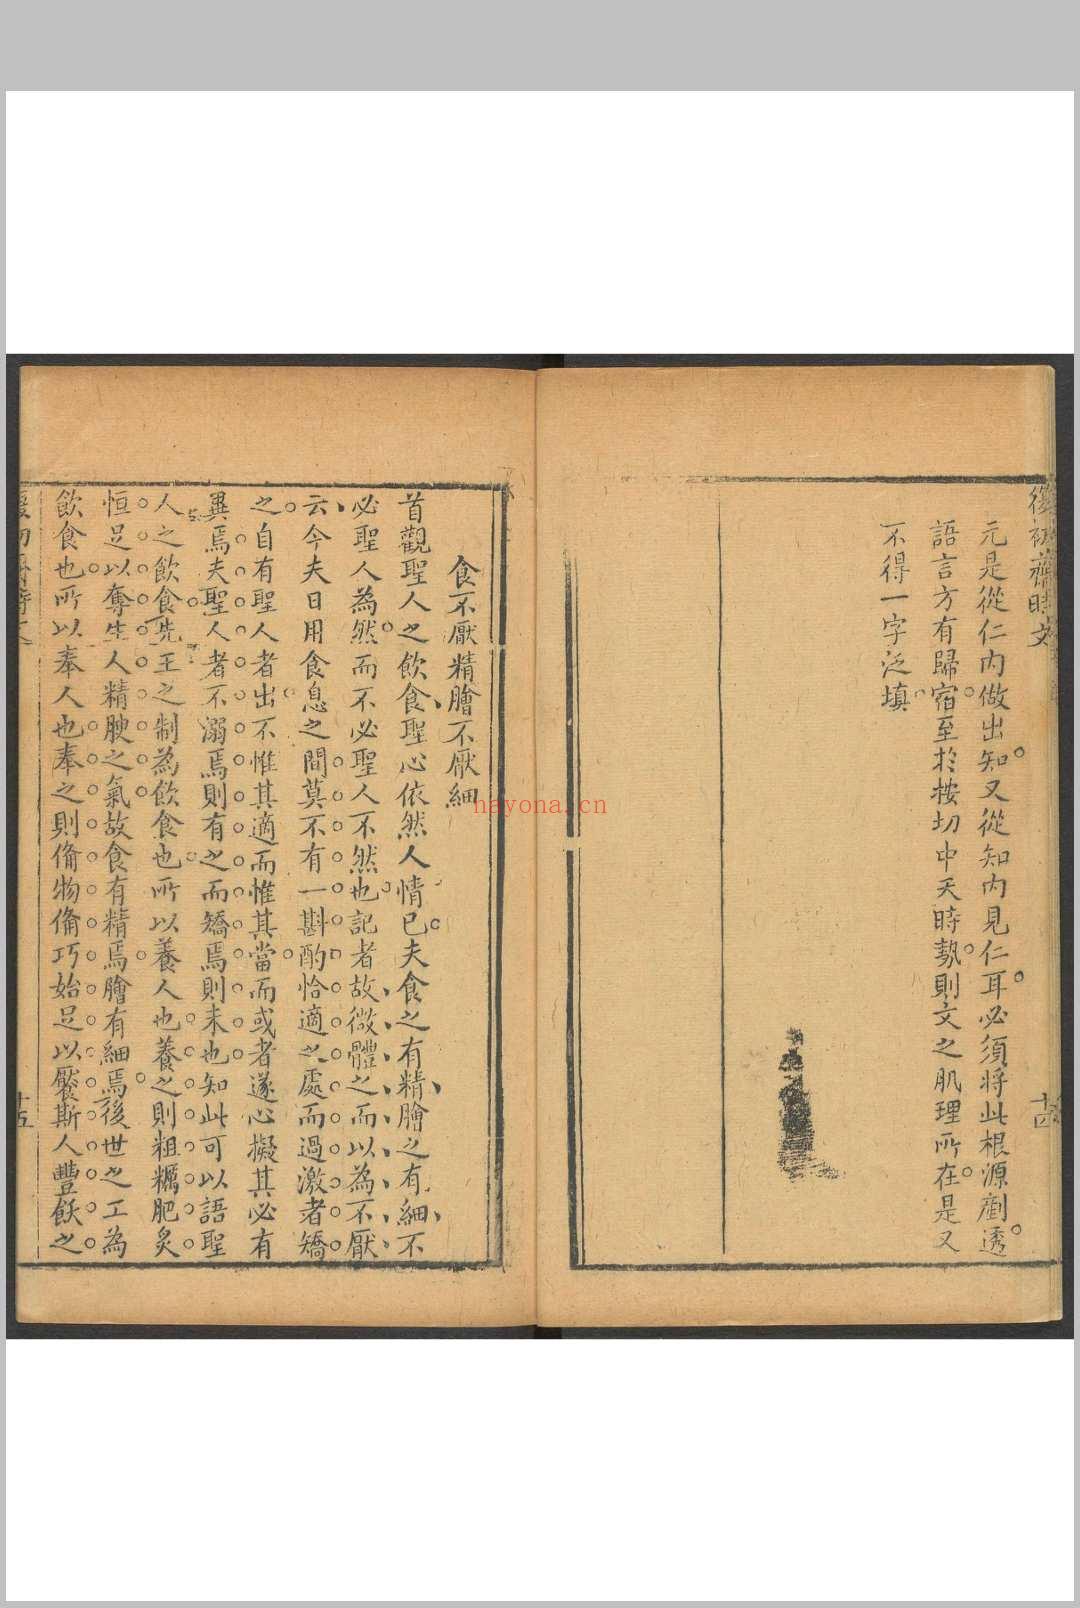 復初齋時文
十四
元是從仁內做出知又從知內見仁耳必須將此根源劃透
語言方有歸宿至於按切中天時執則文之肌理所在是又
不得一字泛填
食不厭精膾不厭細
首觀聖人之飲食聖心依然人情已夫食之有精膾之有細不
必聖人為然而不必聖人不然也記者故微體之而以為不厭
云今夫日用食息之間莫不有一斟酌恰適之處而過激者矯
之自有聖人者出不惟其適而惟其當而或者遂心擬其必有
異焉夫聖人者不溺焉則有之而矯焉則未也知此可以語聖
人之飲食先王之制為飲食也所以養人也養之則粗糲肥炙
恒足以奪生人精腴之氣故食有精焉膾有細焉後世之工為
飲食也所以奉人也奉之則備物備巧始足以饜斯人豐飫之
十五
hayona.cn